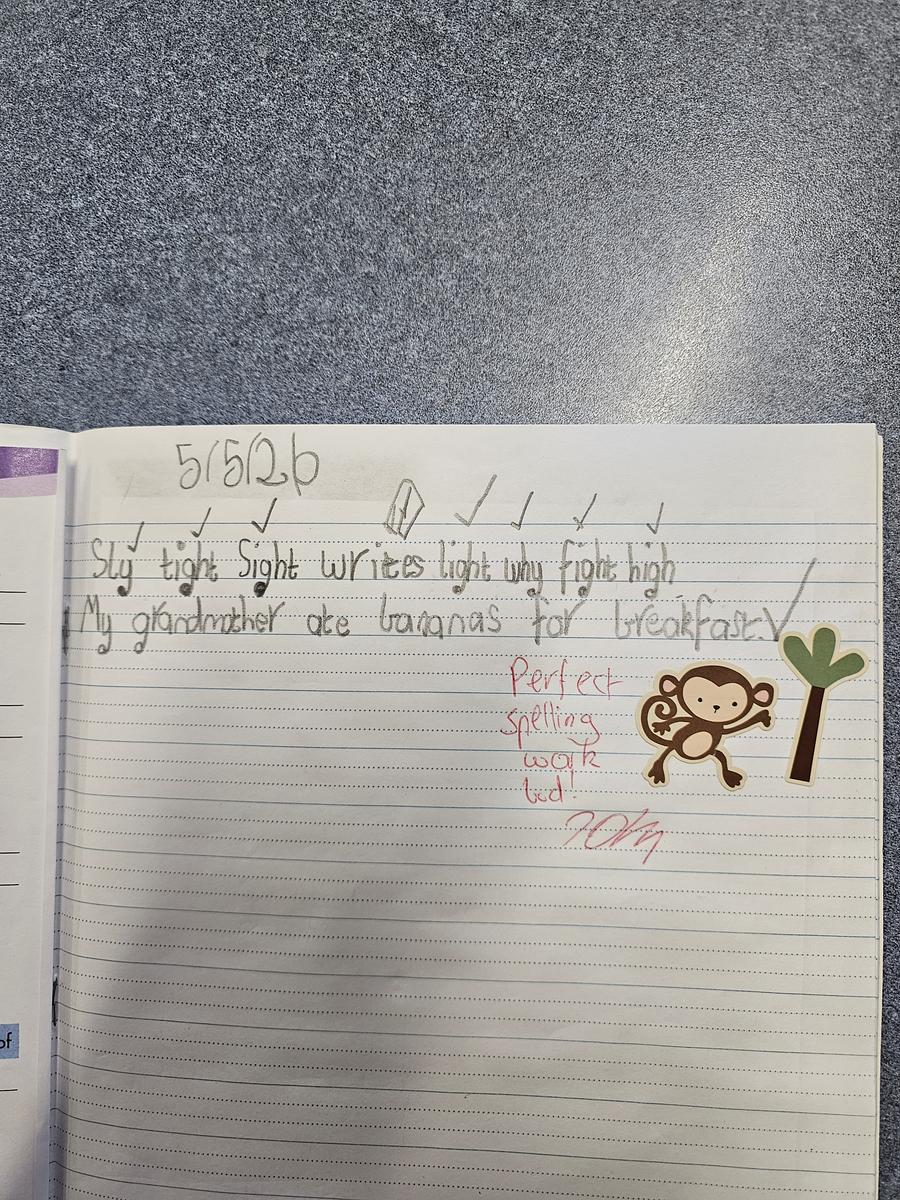 5/5/26
Sly tight Sight writes light why fight high
My grandmother ate bananas for breakfast.
Perfect
spelling
work
bud!
of